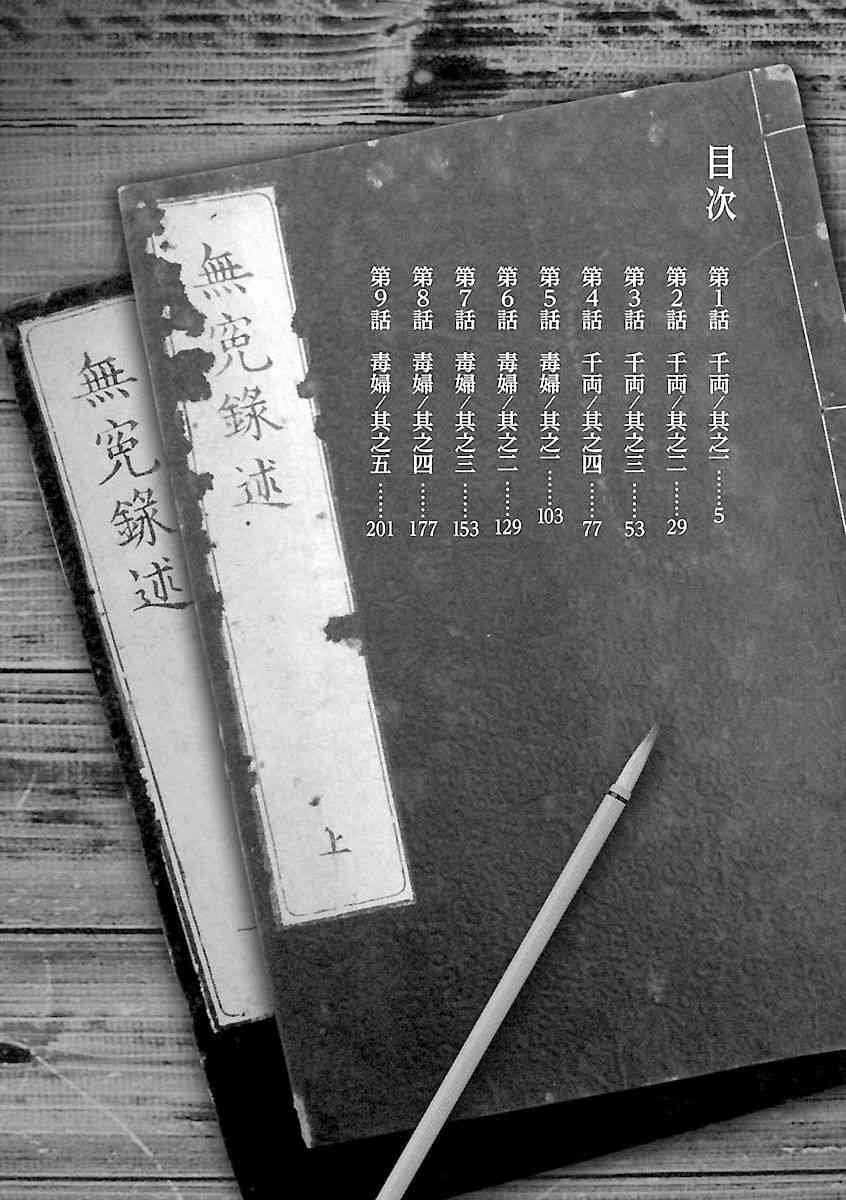 目次
第1話 千両/其之一……5
第2話 千両/其之二……29
第3話 千両/其之三……53
第4話 千両/其之四……77
第5話 毒婦/其之一……103
第6話 毒婦/其之二……129
第7話 毒婦/其之三……153
第8話 毒婦/其之四……177
第9話 毒婦/其之五……201
無冤録述
上
無冤録述